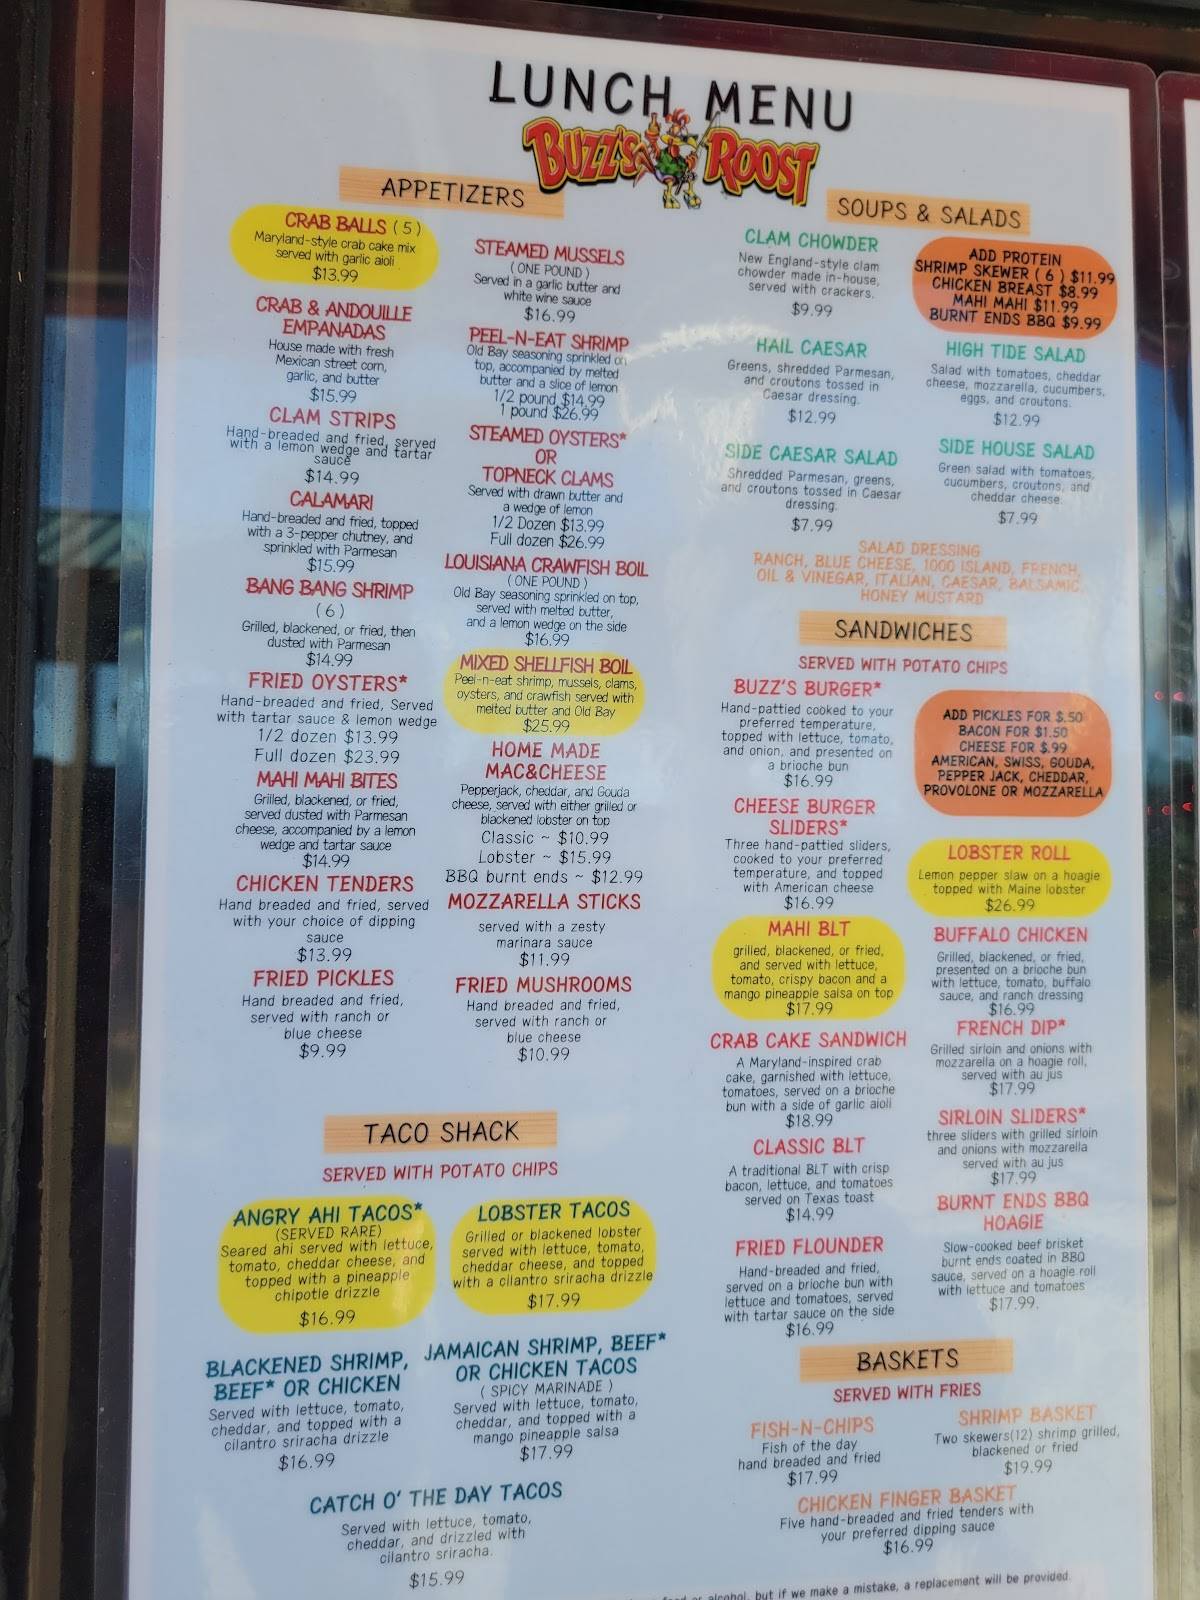 LUNCH MENU
BUZZ'S ROOST
APPETIZERS
CRAB BALLS (5)
Maryland-style crab cake mix
served with garlic aioli
$13.99
CRAB & ANDOUILLE
EMPANADAS
House made with fresh
Mexican street corn,
garlic, and butter
$15.99
CLAM STRIPS
Hand-breaded and fried, served
with a lemon wedge and tartar
sauce
$14.99
CALAMARI
Hand-breaded and fried, topped
with a 3-pepper chutney, and
sprinkled with Parmesan
$15.99
BANG BANG SHRIMP
(6)
Grilled, blackened, or fried, then
dusted with Parmesan
$14.99
FRIED OYSTERS*
Hand-breaded and fried, Served
with tartar sauce & lemon wedge
1/2 dozen $13.99
Full dozen $23.99
MAHI MAHI BITES
Grilled, blackened, or fried,
served dusted with Parmesan
cheese, accompanied by a lemon
wedge and tartar sauce
$14.99
CHICKEN TENDERS
Hand breaded and fried, served
with your choice of dipping
sauce
$13.99
FRIED PICKLES
Hand breaded and fried,
served with ranch or
blue cheese
$9.99
STEAMED MUSSELS
(ONE POUND)
Served in a garlic butter and
white wine sauce
$16.99
PEEL-N-EAT SHRIMP
Old Bay seasoning sprinkled on
top, accompanied by melted
butter and a slice of lemon
1/2 pound $14.99
1 pound $26.99
STEAMED OYSTERS*
OR
TOPNECK CLAMS
Served with drawn butter and
a wedge of lemon
1/2 Dozen $13.99
Full dozen $26.99
LOUISIANA CRAWFISH BOIL
(ONE POUND)
Old Bay seasoning sprinkled on top,
served with melted butter,
and a lemon wedge on the side
$16.99
MIXED SHELLFISH BOIL
Peel-n-eat shrimp, mussels, clams,
oysters, and crawfish served with
melted butter and Old Bay
$25.99
HOME MADE
MAC&CHEESE
Pepperjack, cheddar, and Gouda
cheese, served with either grilled or
blackened lobster on top
Classic ~ $10.99
Lobster ~ $15.99
BBQ burnt ends ~ $12.99
MOZZARELLA STICKS
served with a zesty
marinara sauce
$11.99
FRIED MUSHROOMS
Hand breaded and fried,
served with ranch or
blue cheese
$10.99
TACO SHACK
SERVED WITH POTATO CHIPS
ANGRY AHI TACOS*
(SERVED RARE)
Seared ahi served with lettuce,
tomato, cheddar cheese, and
topped with a pineapple
chipotle drizzle
$16.99
LOBSTER TACOS
Grilled or blackened lobster
served with lettuce, tomato,
cheddar cheese, and topped
with a cilantro sriracha drizzle
$17.99
BLACKENED SHRIMP,
BEEF* OR CHICKEN
Served with lettuce, tomato,
cheddar, and topped with a
cilantro sriracha drizzle
$16.99
JAMAICAN SHRIMP, BEEF*
OR CHICKEN TACOS
( SPICY MARINADE )
Served with lettuce, tomato,
cheddar, and topped with a
mango pineapple salsa
$17.99
CATCH O' THE DAY TACOS
Served with lettuce, tomato,
cheddar, and drizzled with
cilantro sriracha.
$15.99
SOUPS & SALADS
CLAM CHOWDER
New England-style clam
chowder made in-house,
served with crackers.
$9.99
ADD PROTEIN
SHRIMP SKEWER ( 6 ) $11.99
CHICKEN BREAST $8.99
MAHI MAHI $11.99
BURNT ENDS BBQ $9.99
HAIL CAESAR
Greens, shredded Parmesan,
and croutons tossed in
Caesar dressing.
$12.99
HIGH TIDE SALAD
Salad with tomatoes, cheddar
cheese, mozzarella, cucumbers,
eggs, and croutons.
$12.99
SIDE CAESAR SALAD
Shredded Parmesan, greens,
and croutons tossed in Caesar
dressing.
$7.99
SIDE HOUSE SALAD
Green salad with tomatoes,
cucumbers, croutons, and
cheddar cheese.
$7.99
SALAD DRESSING
RANCH, BLUE CHEESE, 1000 ISLAND, FRENCH,
OIL & VINEGAR, ITALIAN, CAESAR, BALSAMIC,
HONEY MUSTARD
SANDWICHES
SERVED WITH POTATO CHIPS
BUZZ'S BURGER*
Hand-pattied cooked to your
preferred temperature,
topped with lettuce, tomato,
and onion, and presented on
a brioche bun
$16.99
CHEESE BURGER
SLIDERS*
Three hand-pattied sliders,
cooked to your preferred
temperature, and topped
with American cheese
$16.99
MAHI BLT
grilled, blackened, or fried,
and served with lettuce,
tomato, crispy bacon and a
mango pineapple salsa on top
$17.99
CRAB CAKE SANDWICH
A Maryland-inspired crab
cake, garnished with lettuce,
tomatoes, served on a brioche
bun with a side of garlic aioli
$18.99
CLASSIC BLT
A traditional BLT with crisp
bacon, lettuce, and tomatoes
served on Texas toast
$14.99
FRIED FLOUNDER
Hand-breaded and fried,
served on a brioche bun with
lettuce and tomatoes, served
with tartar sauce on the side
$16.99
ADD PICKLES FOR $.50
BACON FOR $1.50
CHEESE FOR $.99
AMERICAN, SWISS, GOUDA,
PEPPER JACK, CHEDDAR,
PROVOLONE OR MOZZARELLA
LOBSTER ROLL
Lemon pepper slaw on a hoagie
topped with Maine lobster
$26.99
BUFFALO CHICKEN
Grilled, blackened, or fried,
presented on a brioche bun
with lettuce, tomato, buffalo
sauce, and ranch dressing
$16.99
FRENCH DIP*
Grilled sirloin and onions with
mozzarella on a hoagie roll,
served with au jus
$17.99
SIRLOIN SLIDERS*
three sliders with grilled sirloin
and onions with mozzarella
served with au jus
$17.99
BURNT ENDS BBQ
HOAGIE
Slow-cooked beef brisket
burnt ends coated in BBQ
sauce, served on a hoagie roll
with lettuce and tomatoes
$17.99.
BASKETS
SERVED WITH FRIES
FISH-N-CHIPS
Fish of the day
hand breaded and fried
$17.99
SHRIMP BASKET
Two skewers(12) shrimp grilled,
blackened or fried
$19.99
CHICKEN FINGER BASKET
Five hand-breaded and fried tenders with
your preferred dipping sauce
$16.99
or alcohol, but if we make a mistake, a replacement will be provided.